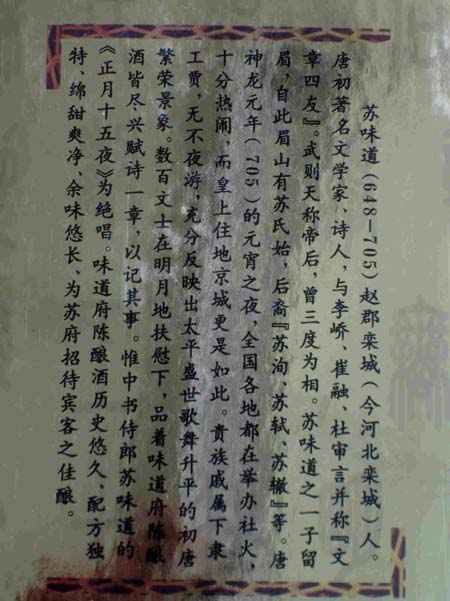 苏味道(648—705)赵郡栾城(今河北栾城)人。
唐初著名文学家、诗人,与李峤、崔融、杜审言并称『文
章四友』。武则天称帝后,曾三度为相。苏味道之一子留
眉,自此眉山有苏氏始,后裔『苏洵、苏轼、苏辙』等。唐
神龙元年(705)的元宵之夜,全国各地都在举办社火,
十分热闹,而皇上住地京城更是如此。贵族戚属下隶
工贾,无不夜游,充分反映出太平盛世歌舞升平的初唐
繁荣景象。数百文士在明月地扶慰下,品着味道府陈酿
酒皆尽兴赋诗一章,以记其事。惟中书侍郎苏味道的
《正月十五夜》为绝唱。味道府陈酿酒历史悠久、配方独
特、绵甜爽净、余味悠长、为苏府招待宾客之佳酿。